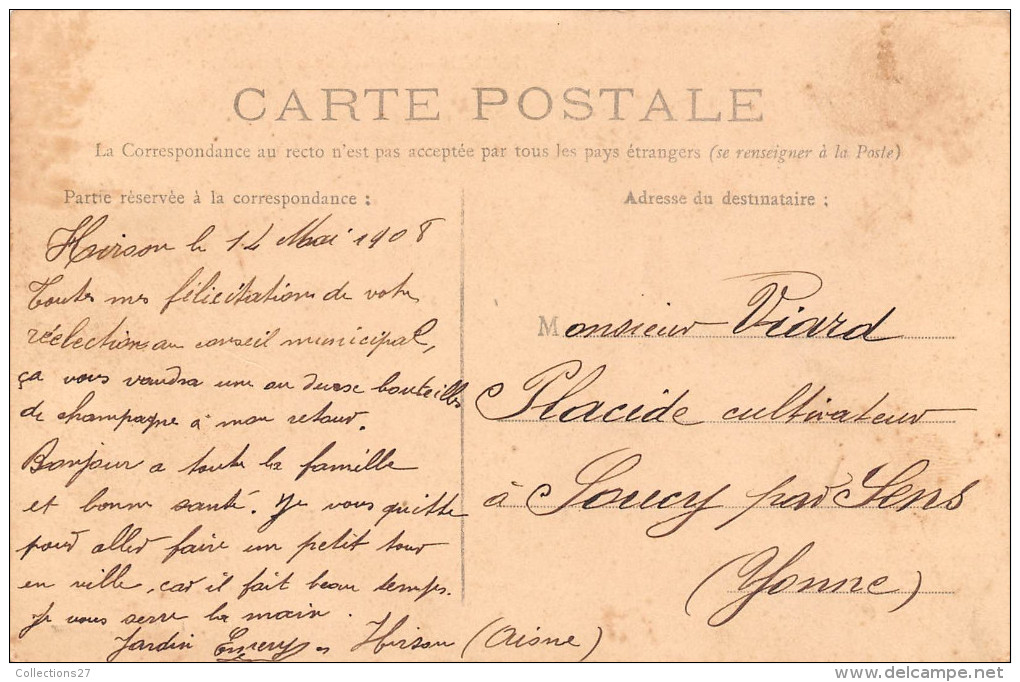 CARTE POSTALE
La Correspondance au recto n'est pas acceptée par tous les pays étrangers (se renseigner à la Poste)
Partie réservée à la correspondance :
Hirson le 14 Mai 1908
Toutes mes félicitations de votre
réelection au conseil municipal,
ça vous vaudra une ou deux bouteilles
de champagne à mon retour.
Bonjour a toute la famille
et bonne santé. Je vous quitte
pour aller faire un petit tour
en ville, car il fait beau temps.
Je vous serre la main.
Jardin Hirson (Aisne)
Adresse du destinataire :
Monsieur Viard
Placide cultivateur
à Soucy par Sens
(Yonne)
Collections27
delcampe.net